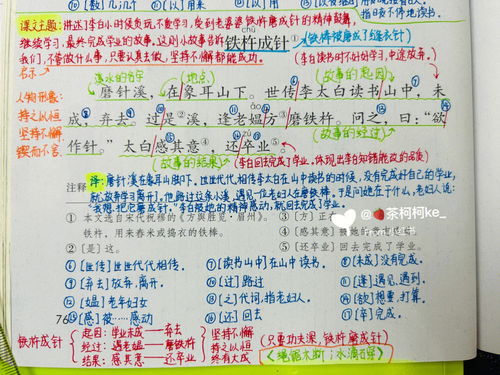 课文主题:讲述李白小时候贪玩,不爱学习,受到老婆婆铁杵磨成针的精神鼓舞,
继续学习,最终完成学业的故事。这则小故事告诉
我们,不管做什么事,只要认真去做,坚持不懈都能成功。
启示
chǔ
铁杵成针①
(铁棒被磨成了缝衣针)
(李白读书时不好好学习,中途放弃。)
溪水的名字
(地点)
(故事的起因)
磨针溪,在象耳山下。世传李太白读书山中,未
成,弃去。过是②溪,逢老媪方③磨铁杵。问之,曰:“欲
作针。”太白感其意④,还卒业⑤。
ǎo
zú
(故事的经过)
(故事的结果)
(李白回去完成了学业。体现出李白知错能改的品质)
人物形象:
持之以恒
坚持不懈
锲而不舍
注释
译:磨针溪在象耳山脚下。世世代代相传李太白在山中读书的时候,没有完成好自己的学业,
就放弃学习离开了。他路过这条小溪,遇见一位老妇人在磨铁棒,于是问她在干什么,老妇人说:
“我想把它磨成针。”李白被她的精神感动,就回去完成了学业。
① 本文选自宋代祝穆的《方舆胜览·眉州》。
铁杵,用来舂米或捣衣的铁棒。
② 〔是〕这。
③ 〔方〕正在
④ 〔感其意〕
⑤ 〔还卒业〕回去完成了学业。
⑥[世传]世世代代相传。
⑦[读书山中]在山中读书。
⑧[未成]没有完成。
⑨[弃去]放弃,离开。
⑩[过]路过
⑪[逢]遇见,遇到。
⑫[媪]老年妇女
⑬[之]代词,指老妇人。
⑭[欲]想要,打算。
76
⑮[感]被……感动
⑯[还]回去
⑰[卒]完成。
铁杵成针
起因:学业未成——弃去
经过:遇老媪——磨铁杵
结果:感其意——还卒业
坚持不懈
持之以恒
终有大成
(只要功夫深,铁杵磨成针)
《绳锯木断;水滴石穿》
@茶柯柯ke_